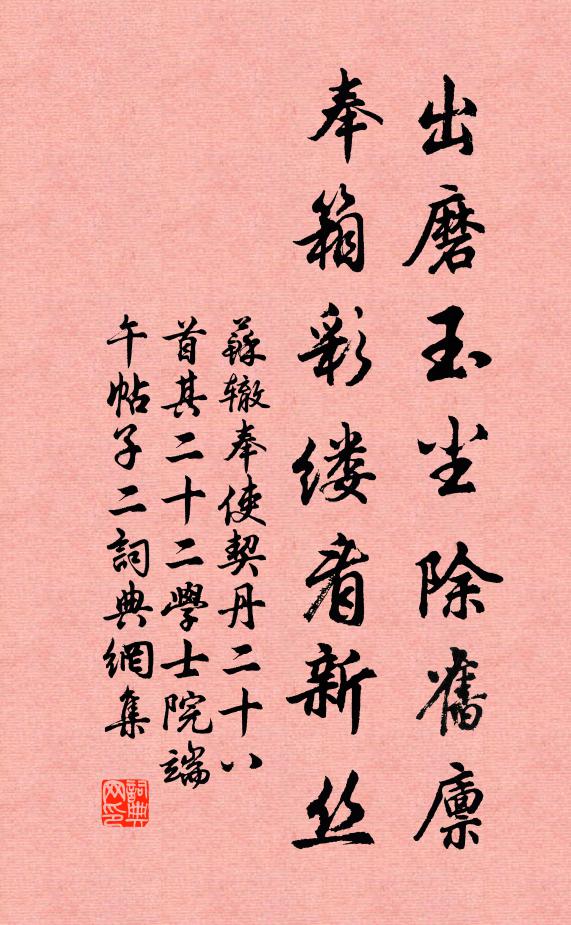 出磨玉尘除旧廪
奉箱彩缕看新丝
蘇辙奉使契丹二十八
首其二十二學士院端
午帖子二詞典網集
詞典网印